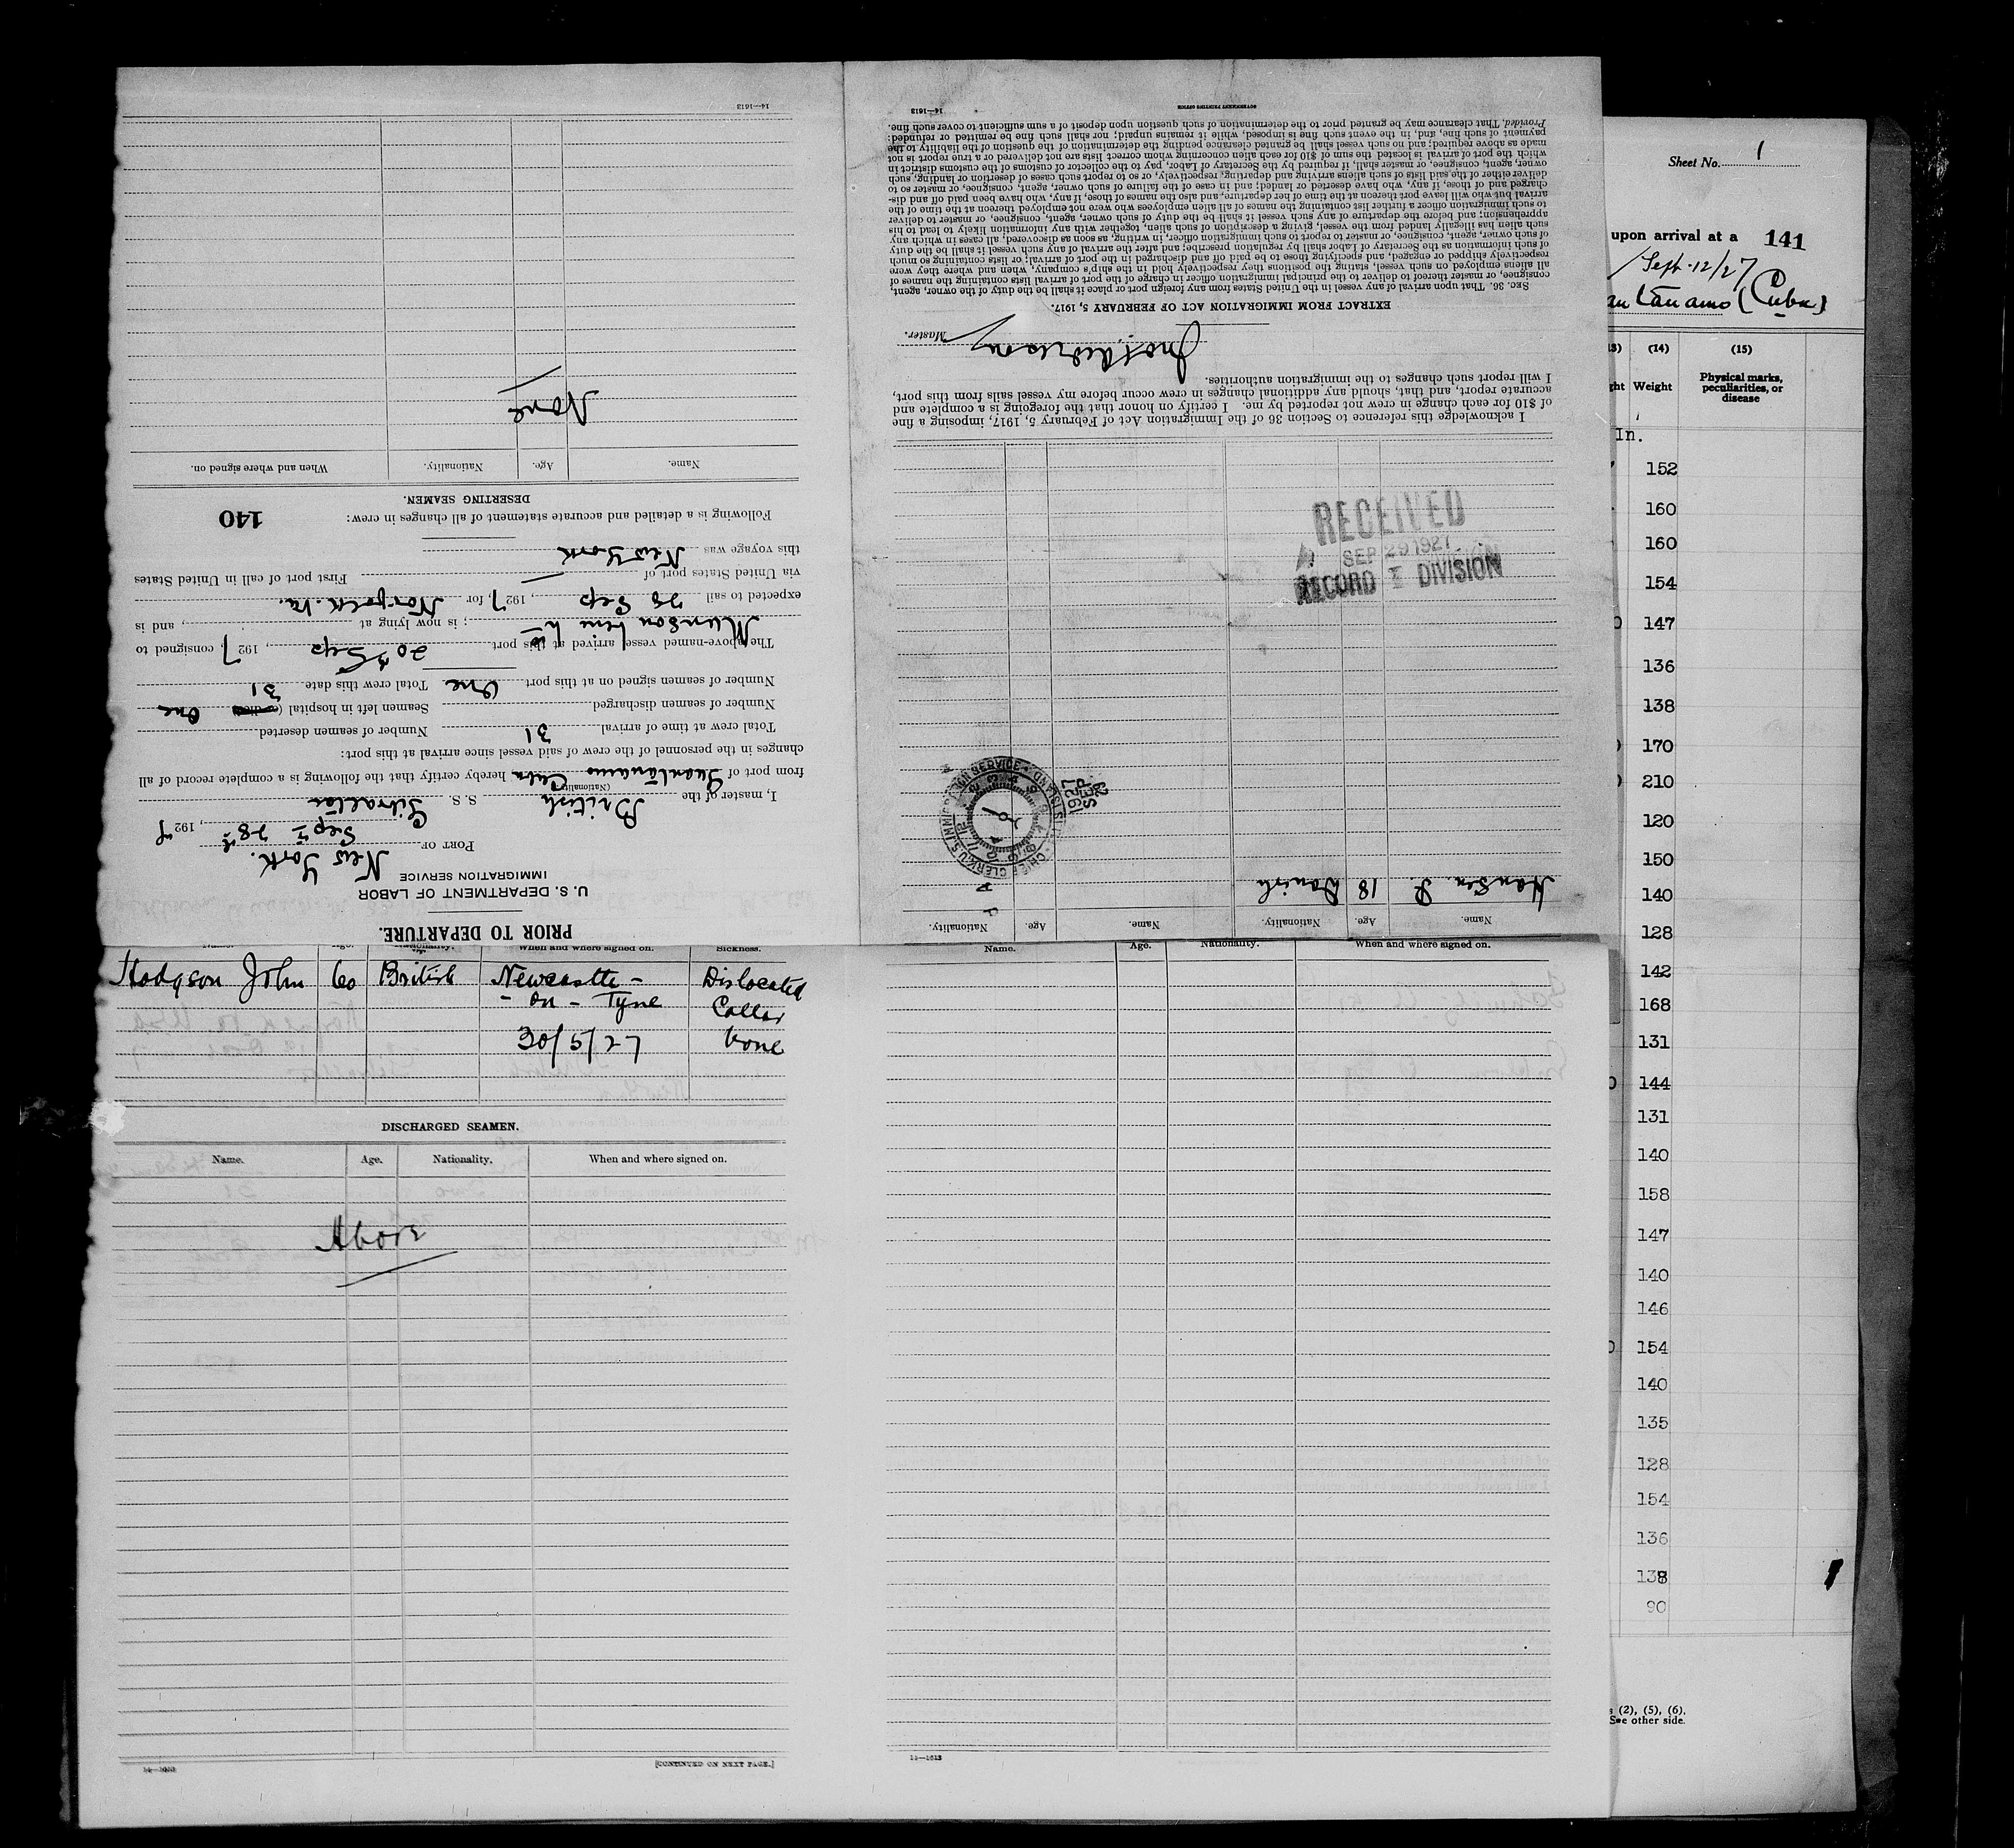 PRIOR TO DEPARTURE.
U. S. DEPARTMENT OF LABOR
IMMIGRATION SERVICE
PORT OF New York.
Sept 28th, 1927
I, master of the British S. S. Gibraltar
(Nationality)
from port of Guantanamo Cuba hereby certify that the following is a complete record of all
changes in the personnel of the crew of said vessel since arrival at this port:
Total crew at time of arrival 31 Number of seamen deserted
Number of seamen discharged Seamen left in hospital ( One
Number of seamen signed on at this port One Total crew this date 31
The above-named vessel arrived at this port 20th Sep, 1927, consigned to
Munson Line ; is now lying at , and is
expected to sail 28 Sep, 1927, for Norfolk. Va.
via United States port of First port of call in United States
this voyage was New York
Following is a detailed and accurate statement of all changes in crew: 140
DESERTING SEAMEN.
Name. Age. Nationality. When and where signed on.
None
14—1613
Name. Age. Nationality. Name. Age. Nationality.
Hansen P. 18 Danish
CHIEF CLERK U.S. IMMIGRATION SERVICE ELLIS ISLAND
1927
SEP
RECEIVED
SEP 29 1927
RECORD DIVISION
I acknowledge this reference to Section 36 of the Immigration Act of February 5, 1917, imposing a fine
of $10 for each change in crew not reported by me. I certify on honor that the foregoing is a complete and
accurate report, and that, should any additional changes in crew occur before my vessel sails from this port,
I will report such changes to the immigration authorities.
Master.
EXTRACT FROM IMMIGRATION ACT OF FEBRUARY 5, 1917.
SEC. 36. That upon arrival of any vessel in the United States from any foreign port or place it shall be the duty of the owner, agent,
consignee, or master thereof to deliver to the principal immigration officer in charge of the port of arrival lists containing the names of
all aliens employed on such vessel, stating the positions they respectively hold in the ship's company, when and where they were
respectively shipped or engaged, and specifying those to be paid off and discharged in the port of arrival; or lists containing so much
of such information as the Secretary of Labor shall by regulation prescribe; and after the arrival of any such vessel it shall be the duty
of such owner, agent, consignee, or master to report to such immigration officer, in writing, as soon as discovered, all cases in which any
such alien has illegally landed from the vessel, giving a description of such alien, together with any information likely to lead to his
apprehension; and before the departure of any such vessel it shall be the duty of such owner, agent, consignee, or master to deliver
to such immigration officer a further list containing the names of all alien employees who were not employed thereon at the time of the
arrival but who will leave port thereon at the time of her departure, and also the names of those, if any, who have been paid off and dis-
charged and of those, if any, who have deserted or landed; and in case of the failure of such owner, agent, consignee, or master so to
deliver either of the said lists of such aliens arriving and departing, respectively, or so to report such cases of desertion or landing, such
owner, agent, consignee, or master shall, if required by the Secretary of Labor, pay to the collector of customs of the customs district in
which the port of arrival is located the sum of $10 for each alien concerning whom correct lists are not delivered or a true report is not
made as above required; and no such vessel shall be granted clearance pending the determination of the question of the liability to the
payment of such fine, and, in the event such fine is imposed, while it remains unpaid; nor shall such fine be remitted or refunded:
Provided, That clearance may be granted prior to the determination of such question upon deposit of a sum sufficient to cover such fine.
14—1613 GOVERNMENT PRINTING OFFICE
Age. Nationality. When and where signed on. Sickness.
Hodgson John 60 British Newcastle - Dislocated
- on - Tyne Collar
30/5/27 bone
DISCHARGED SEAMEN.
Name. Age. Nationality. When and where signed on.
Above
14—1613 [CONTINUED ON NEXT PAGE.]
Name. Age. Nationality. When and where signed on.
14—1613
Sheet No. 1
upon arrival at a 141
Sept. 12/27
antanamo (Cuba)
(14) (15)
Weight Physical marks,
peculiarities, or
disease
In.
152
160
160
154
147
136
138
170
210
120
150
140
128
142
168
131
144
131
140
158
147
140
146
154
140
135
128
154
136
138
90
(2), (5), (6).
See other side.